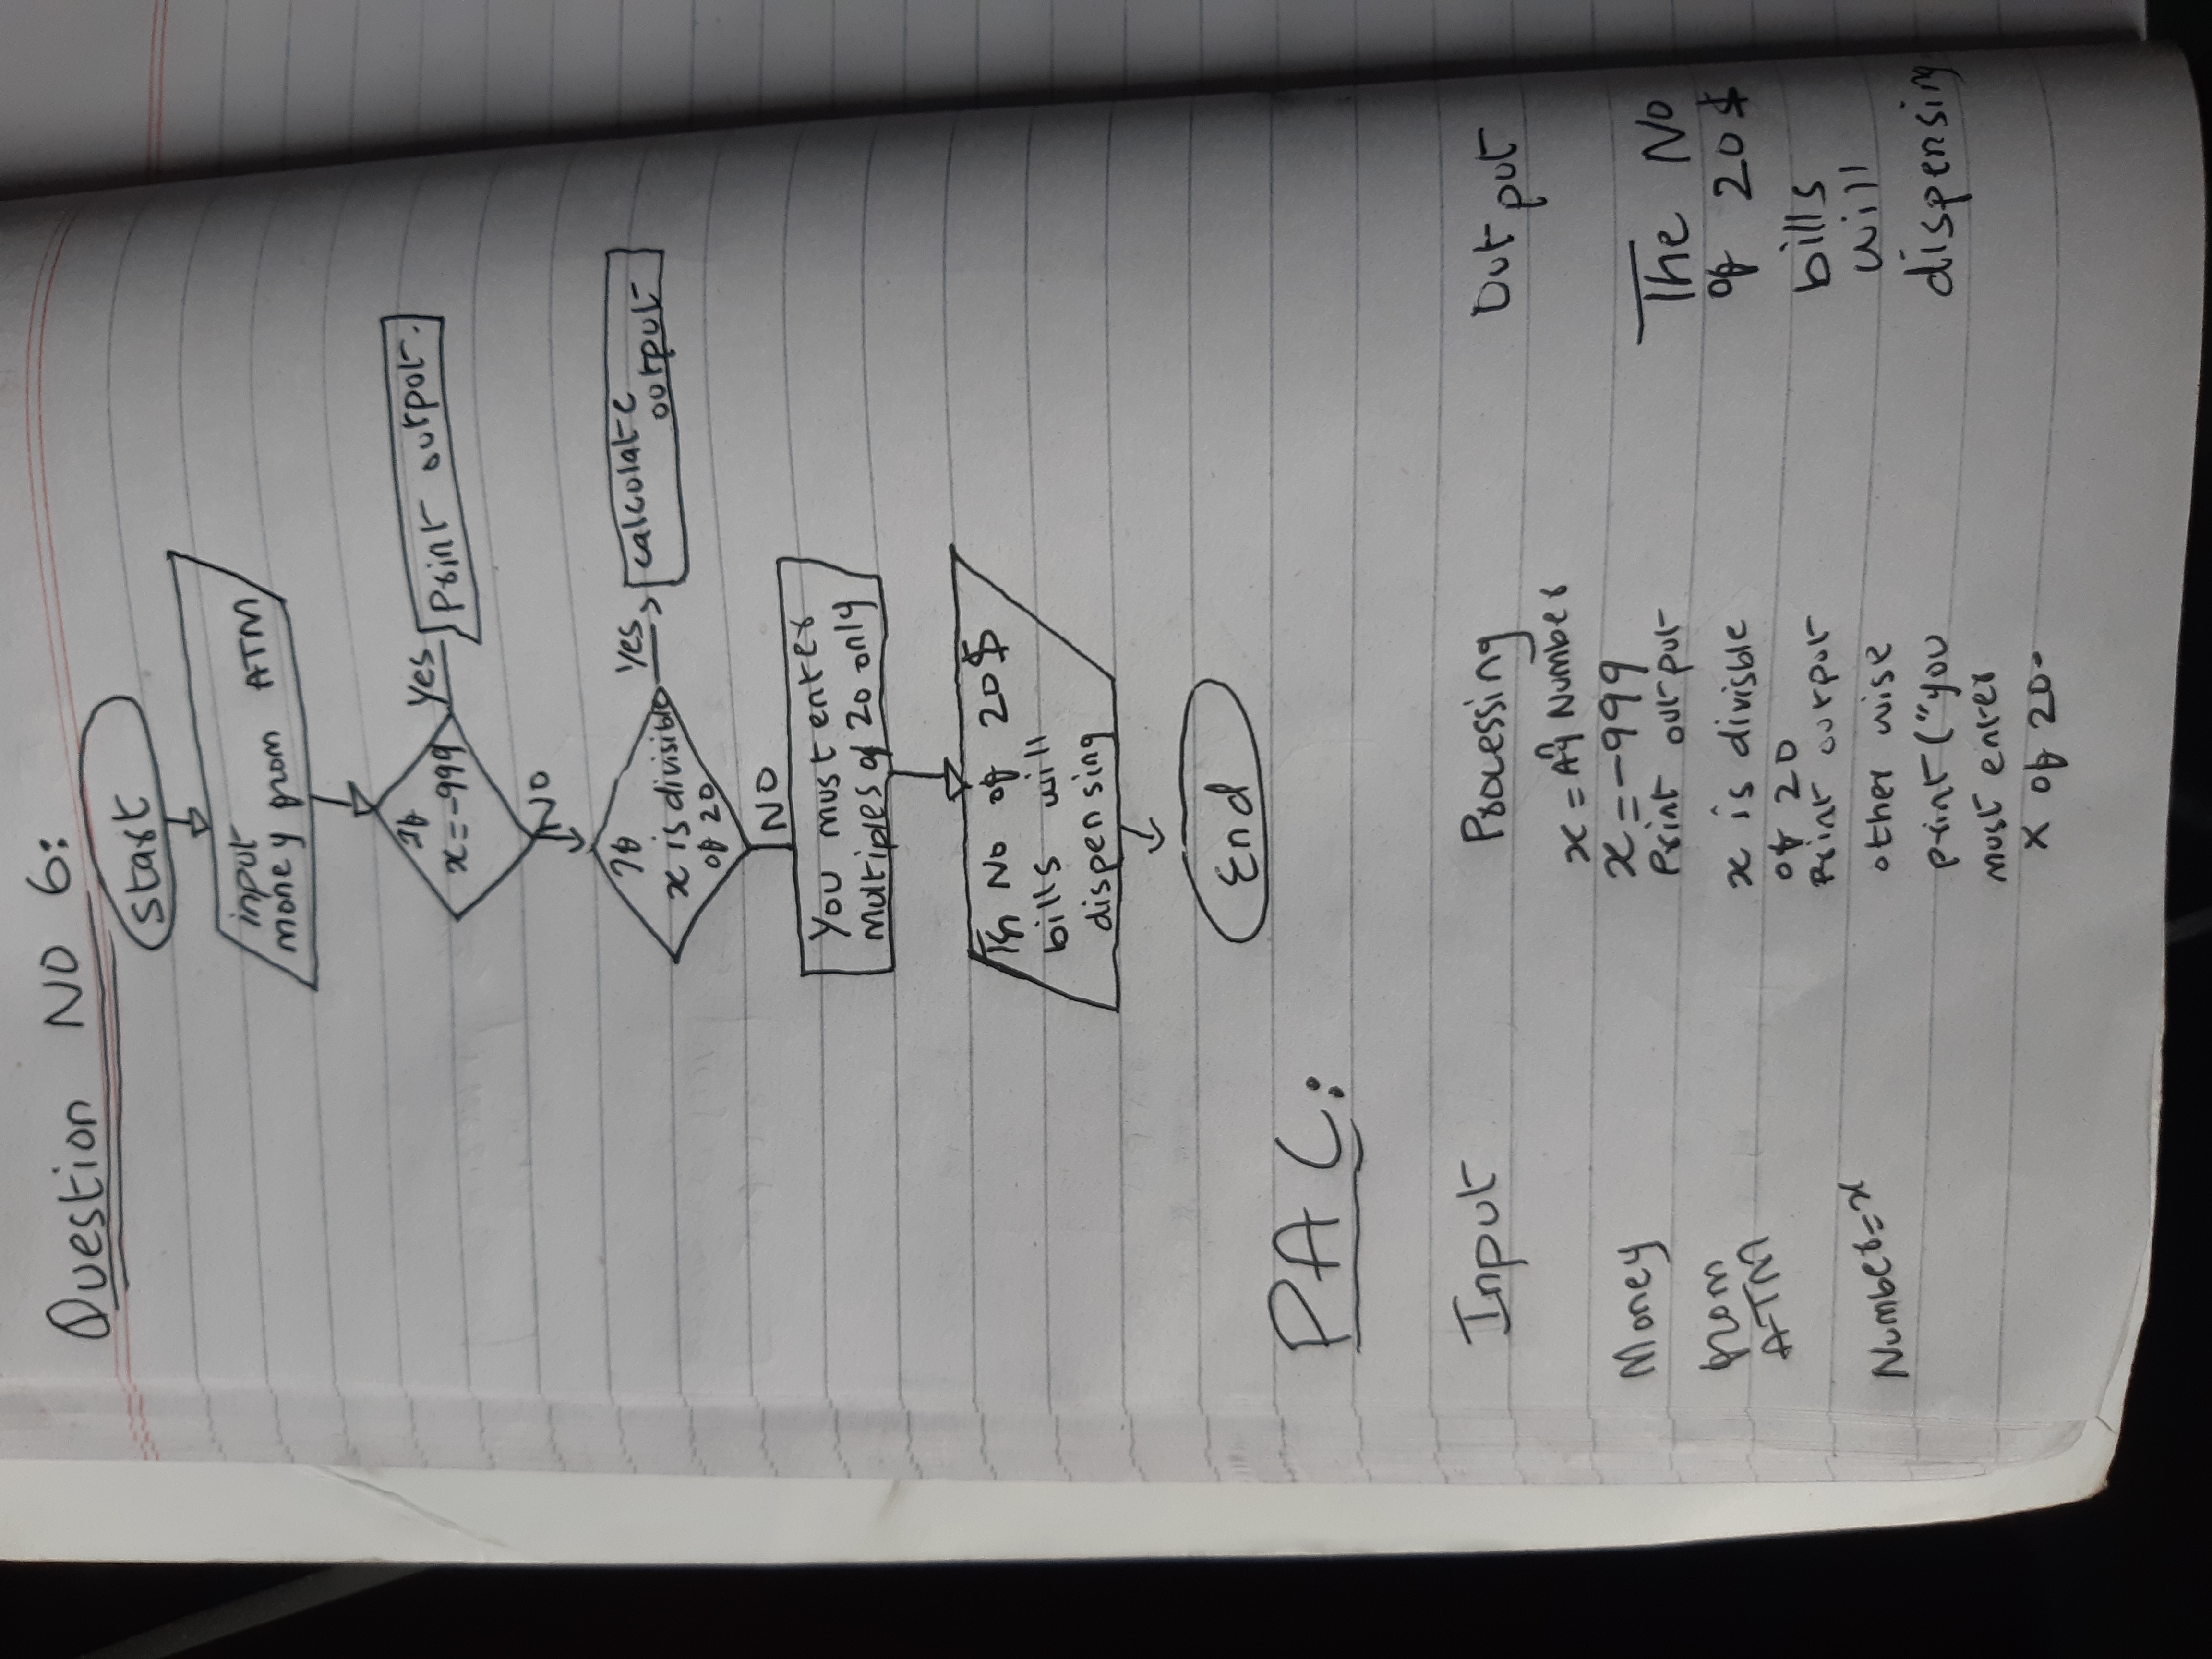 Question NO 6:
Start
input
money from ATM
If
x=-999
Yes
Print output.
NO
If
x is divisible
of 20
Yes
calculate
output
NO
You must enter
multiples of 20 only
No of 20$
bills will
dispensing
End
PAC:
Input
Processing
Output
x = Any Number
x=-999
Print output
x is divisble
of 20
Print output
other wise
print ("you
must enter
x of 20.
Money
from
ATM
Number=x
The No
of 20$
bills
will
dispensing